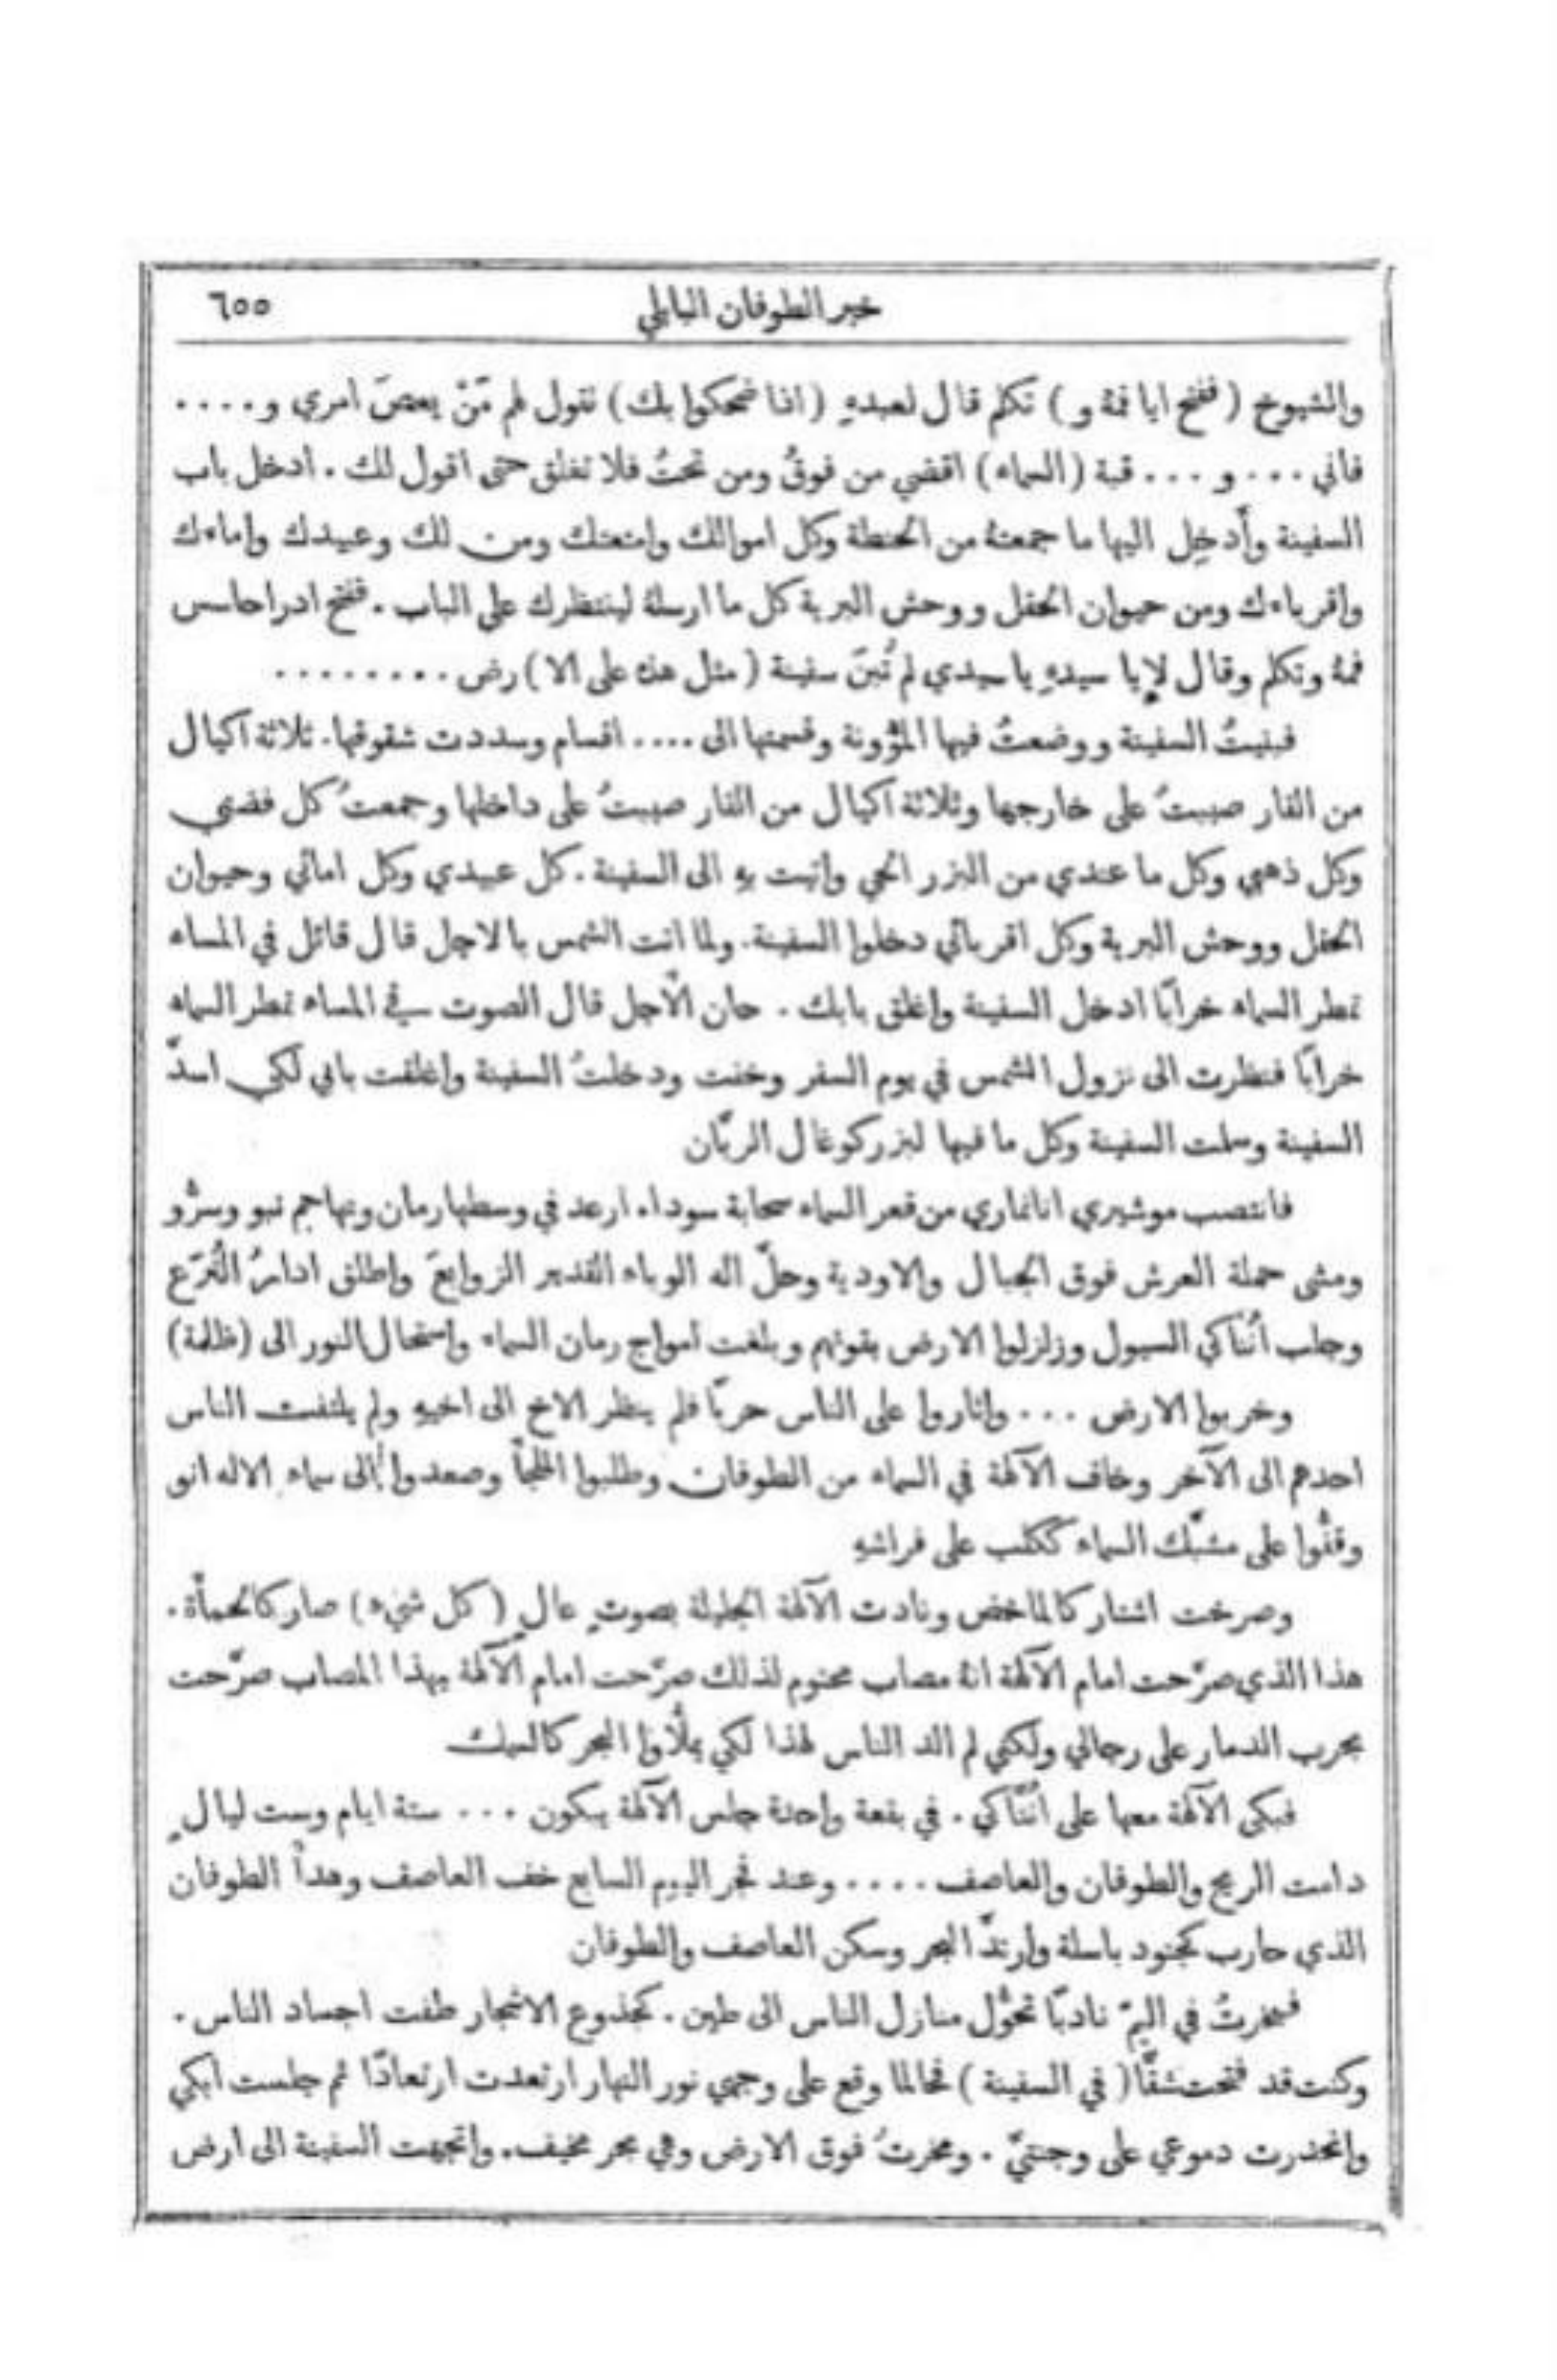 خبر الطوفان البابلي ٦٥٥
والشيوخ (ففتح ايا فمهُ و) تكلم قال لعبدهِ (اذا ضحكوا بك) نقول لهم مَنْ يعصَ امري و....
فاني ... و ... قبة (السماء) اقضي من فوقُ ومن تحتُ فلا تغلق حتى اقول لك . ادخل باب
السفينة وأَدخِل اليها ما جمعتهُ من الحنطة وكل اموالك وامتعتك ومن لك وعبيدك واماءك
واقرباءك ومن حيوان الحقل ووحش البرية كل ما ارسلهُ لينتظرك على الباب . ففتح ادراحاسس
فمهُ وتكلم وقال لإيا سيدهِ يا سيدي لم تُبنَ سفينة (مثل هذه على الا) رض ........
فبنيتُ السفينة ووضعتُ فيها المؤُونة وقسمتها الى .... اقسام وسددت شقوقها. ثلاثة اكيال
من القار صببتُ على خارجها وثلاثة اكيال من القار صببتُ على داخلها وجمعتُ كل فضتي
وكل ذهبي وكل ما عندي من البزر الحي واتيت بهِ الى السفينة. كل عبيدي وكل امائي وحيوان
الحقل ووحش البرية وكل اقربائي دخلوا السفينة. ولما اتت الشمس بالاجل قال قائل في المساء
تمطر السماء خرابًا ادخل السفينة واغلق بابك . حان الاجل قال الصوت في المساء تمطر السماء
خرابًا فنظرت الى نزول الشمس في يوم السفر وخفت ودخلتُ السفينة واغلقت بابي لكي اسدّ
السفينة وسلمت السفينة وكل ما فيها لبزركورغال الربّان
فانتصب موشيري اناناري من قعر السماء سحابة سوداء ارعد في وسطها رمان وتهاجم نبو وسرُّو
ومشى حملة العرش فوق الجبال والاودية وحلّ اله الوباء القدير الزوابعَ واطلق ادارُ التُّرَع
وجلب أنُنَّاكي السيول وزلزلوا الارض بقوتهم وبلغت امواج رمان السماء واستحال النور الى (ظلمة)
وخربوا الارض ... واثاروا على الناس حربًا فلم ينظر الاخ الى اخيهِ ولم يلتفت الناس
احدهم الى الآخر وخاف الآلهة في السماء من الطوفان وطلبوا الملجأ وصعدوا الى سماء الاله انو
وقفُّوا على مشبّك السماء ككلب على فراشهِ
وصرخت اشتار كالماخض ونادت الآلهة الجليلة بصوتٍ عالٍ (كل شيء) صار كالحمأَة.
هذا الذي صرّحت امام الآلهة انهُ مصاب محتوم لذلك صرّحت امام الآلهة بهذا المصاب صرّحت
بحرب الدمار على رجالي ولكني لم الد الناس لهذا لكي يملأُوا البحر كالسمك
فبكى الآلهة معها على أنُنَّاكي . في بقعة واحدة جلس الآلهة يبكون ... ستة ايام وست ليالٍ
دامت الريح والطوفان والعاصف .... وعند فجر اليوم السابع خف العاصف وهدأَ الطوفان
الذي حارب كجنود باسلة وارتدَّ البحر وسكن العاصف والطوفان
فمخرتُ في اليمّ نادبًا تحوُّل منازل الناس الى طين . كجذوع الاشجار طفت اجساد الناس .
وكنت قد فتحت شقًّا (في السفينة) فحالما وقع على وجهي نور النهار ارتعدت ارتعادًا ثم جلست ابكي
وانحدرت دموعي على وجنتيَّ . ومخرتُ فوق الارض وهي بحر مخيف. واتجهت السفينة الى ارض